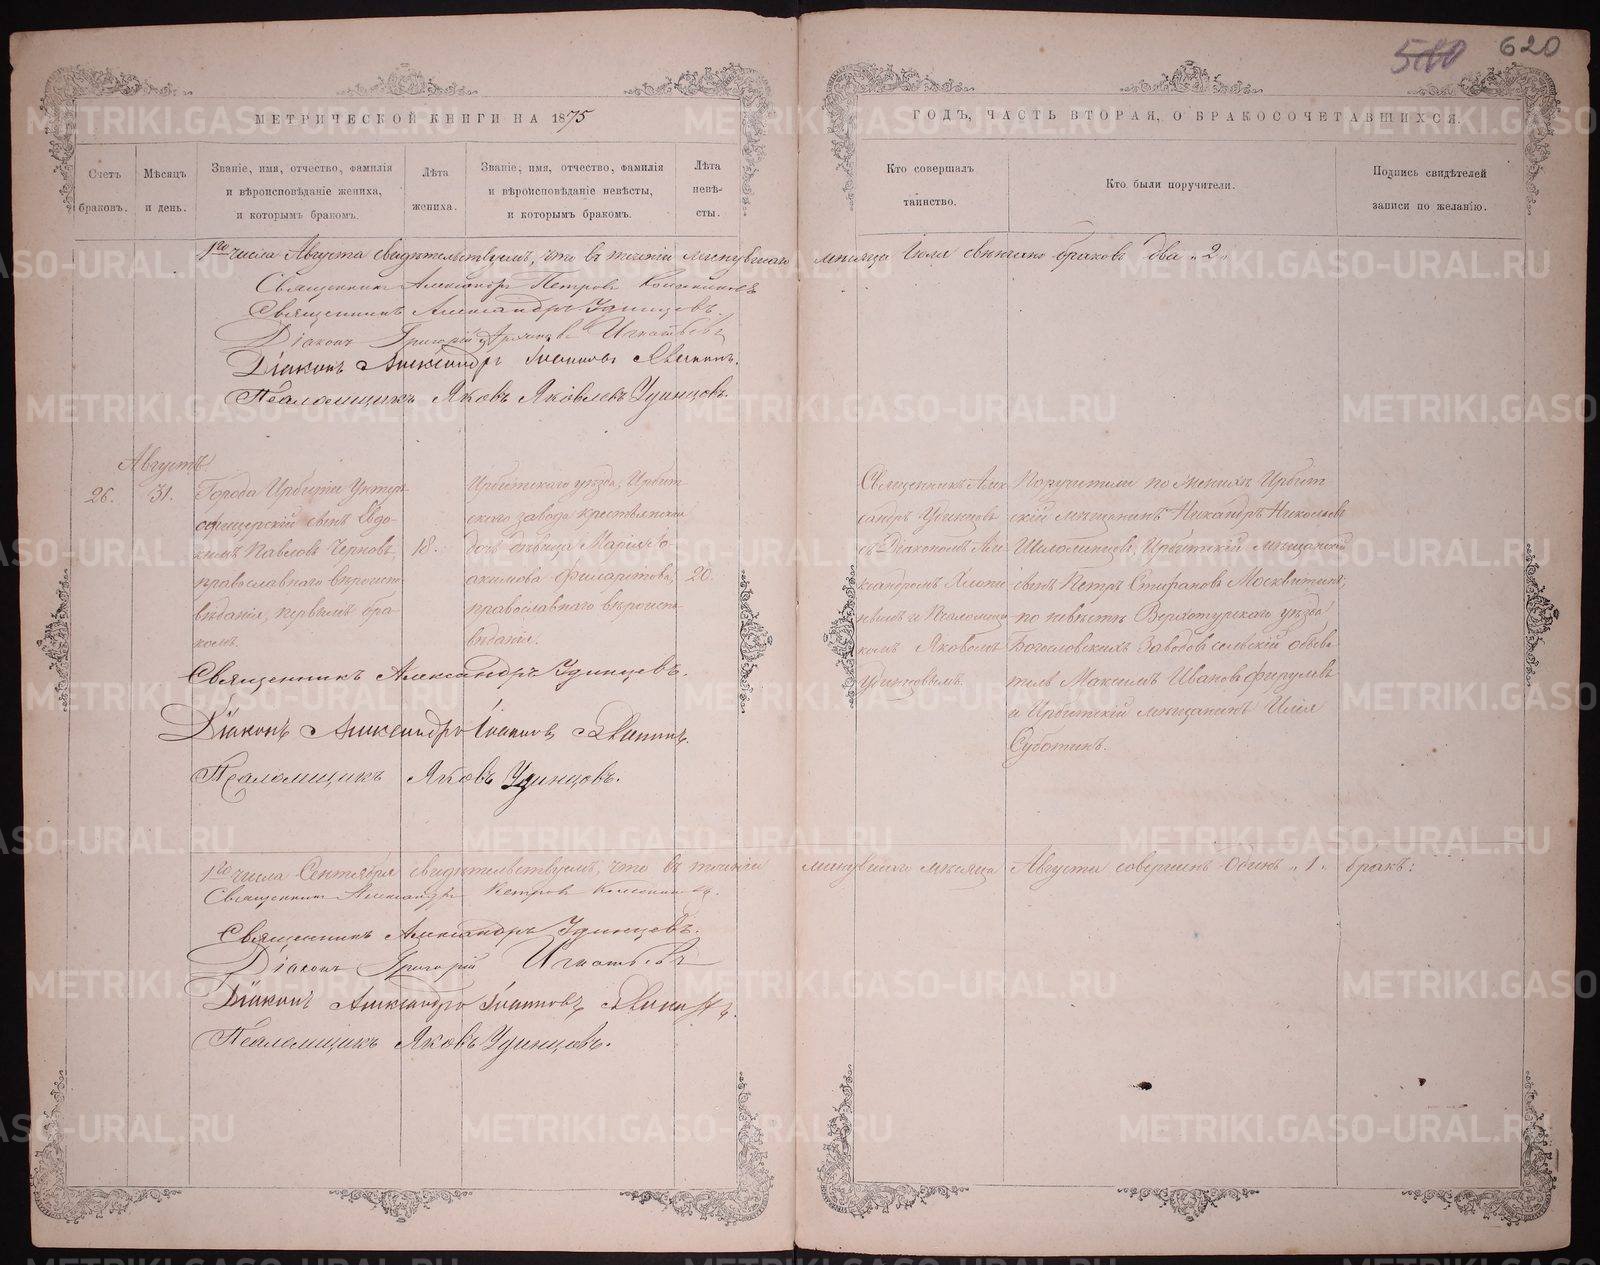 580 620
МЕТРИЧЕСКОЙ КНИГИ НА 1875
ГОДЪ, ЧАСТЬ ВТОРАЯ, О БРАКОСОЧЕТАВШИХСЯ.
Счетъ браковъ.
Мѣсяцъ и день.
Званіе, имя, отчество, фамилія
и вѣроисповѣданіе жениха,
и которымъ бракомъ.
Лѣта
жениха.
Званіе, имя, отчество, фамилія
и вѣроисповѣданіе невѣсты,
и которымъ бракомъ.
Лѣта
невѣ-
сты.
Кто совершалъ
таинство.
Кто были поручители.
Подпись свидѣтелей
записи по желанію.
1го числа Августа свидѣтельствуемъ, что въ теченіи минувшаго мѣсяца Іюля свѣнчано браковъ два „2„
Священникъ Александръ Петровъ
Священникъ Александръ Удинцевъ.
Діаконъ Григорій Игнатьевъ
Діаконъ Александръ Іоанновъ
Псаломщикъ Яковъ Яковлевъ Удинцовъ.
Августъ
26.
31.
Города Ирбити Унтеръ
офицерскій сынъ Евдо-
кимъ Павловъ Черновъ,
православнаго вѣроиспо
вѣданія, первымъ бра-
комъ.
18.
Ирбитскаго уѣзда, Ирбит
скаго завода крестьянская
дочь дѣвица Марія Іо
акимова Филаретова,
православнаго вѣроиспо
вѣданія.
20.
Священникъ Алек
сандръ Удинцевъ
съ Діакономъ Але
ксандромъ
и Псаломщи
комъ Яковомъ
Удинцовымъ.
Поручители по женихѣ Ирбит
скій мѣщанинъ Никандръ Николаевъ
Шаламенцевъ, Ирбитскій мѣщанскій
сынъ Петръ Стефановъ Москвитинъ;
по невѣстѣ Верхотурскаго уѣзда
Богословскихъ Заводовъ сельскій обыва
тель Максимъ Ивановъ
и Ирбитскій мѣщанинъ Илія
Суботинъ.
Священникъ Александръ Удинцевъ.
Діаконъ Александръ Іоанновъ
Псаломщикъ Яковъ Удинцовъ.
1го числа Сентября свидѣтельствуемъ, что въ теченіи минувшаго мѣсяца Августа совершенъ Одинъ „1„ бракъ:
Священникъ Александръ Петровъ
Священникъ Александръ Удинцевъ.
Діаконъ Григорій Игнатьевъ
Діаконъ Александръ Іоанновъ
Псаломщикъ Яковъ Удинцовъ.
METRIKI.GASO-URAL.RU